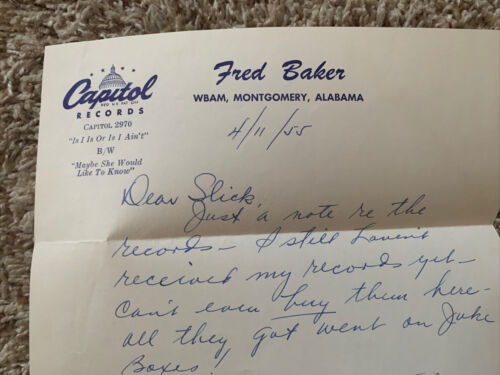 Capitol
REG. U.S. PAT. OFF.
RECORDS
CAPITOL 2970
"Is I Is Or Is I Ain't"
B/W
"Maybe She Would
Like To Know"
Fred Baker
WBAM, MONTGOMERY, ALABAMA
4/11/55
Dear Slick,
Just a note re the
records – I still haven't
received my records yet –
can't even buy them here –
all they got went on Juke
Boxes!